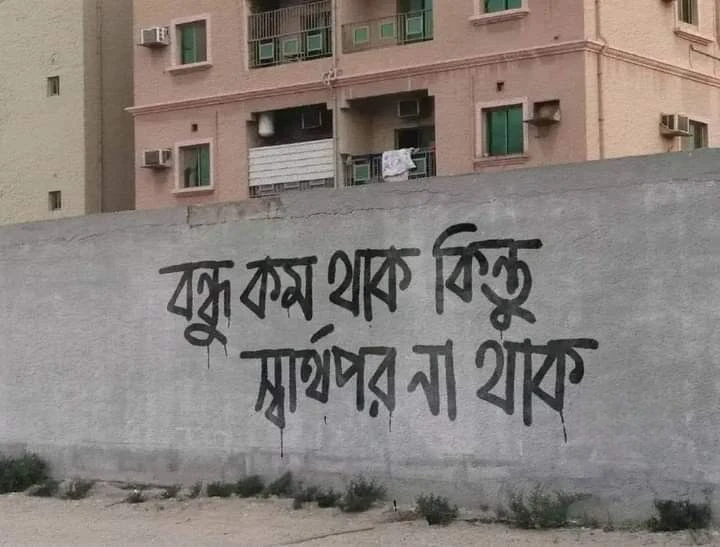 বন্ধু কম থাক কিন্তু
স্বার্থপর না থাক